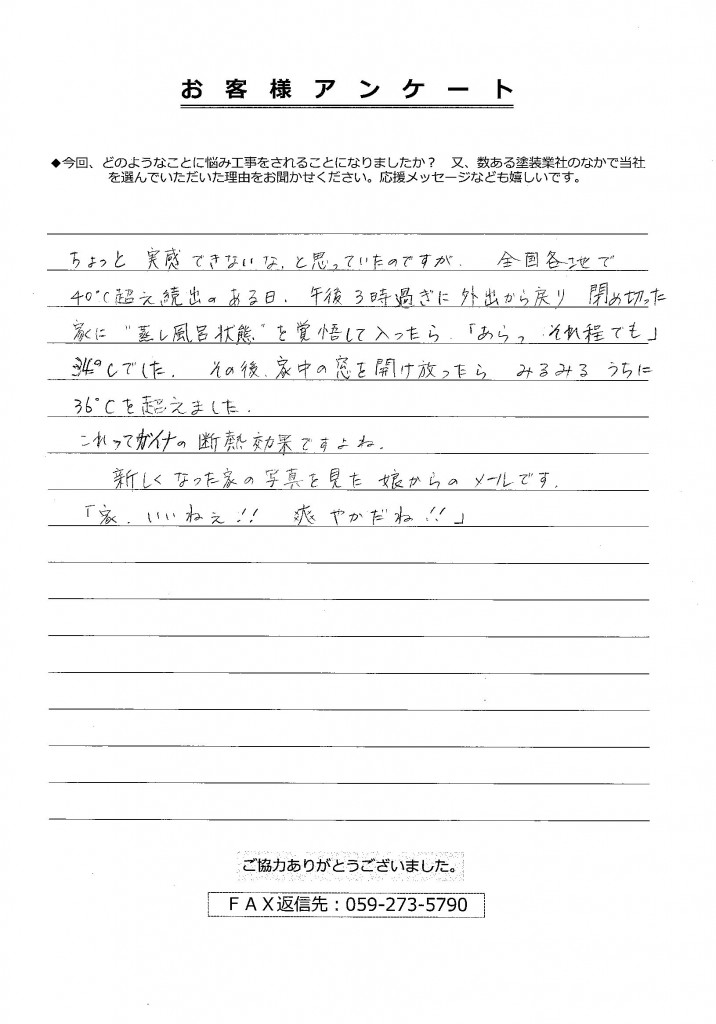 お客様アンケート
◆今回、どのようなことに悩み工事をされることになりましたか？　又、数ある塗装業社のなかで当社
を選んでいただいた理由をお聞かせください。応援メッセージなども嬉しいです。
ちょっと 実感できないな、と思っていたのですが、 全国各地で
40℃超え続出のある日、午後3時過ぎに外出から戻り 閉め切った
家に"蒸し風呂状態"を覚悟して入ったら、「あらっ、それ程でも」
34℃でした。 その後、家中の窓を開け放ったら みるみるうちに
36℃を超えました。
これってガイナの断熱効果ですよね。
新しくなった家の写真を見た 娘からのメールです。
「家、いいねぇ!! 爽やかだね!!」
ご協力ありがとうございました。
ＦＡＸ返信先：059-273-5790